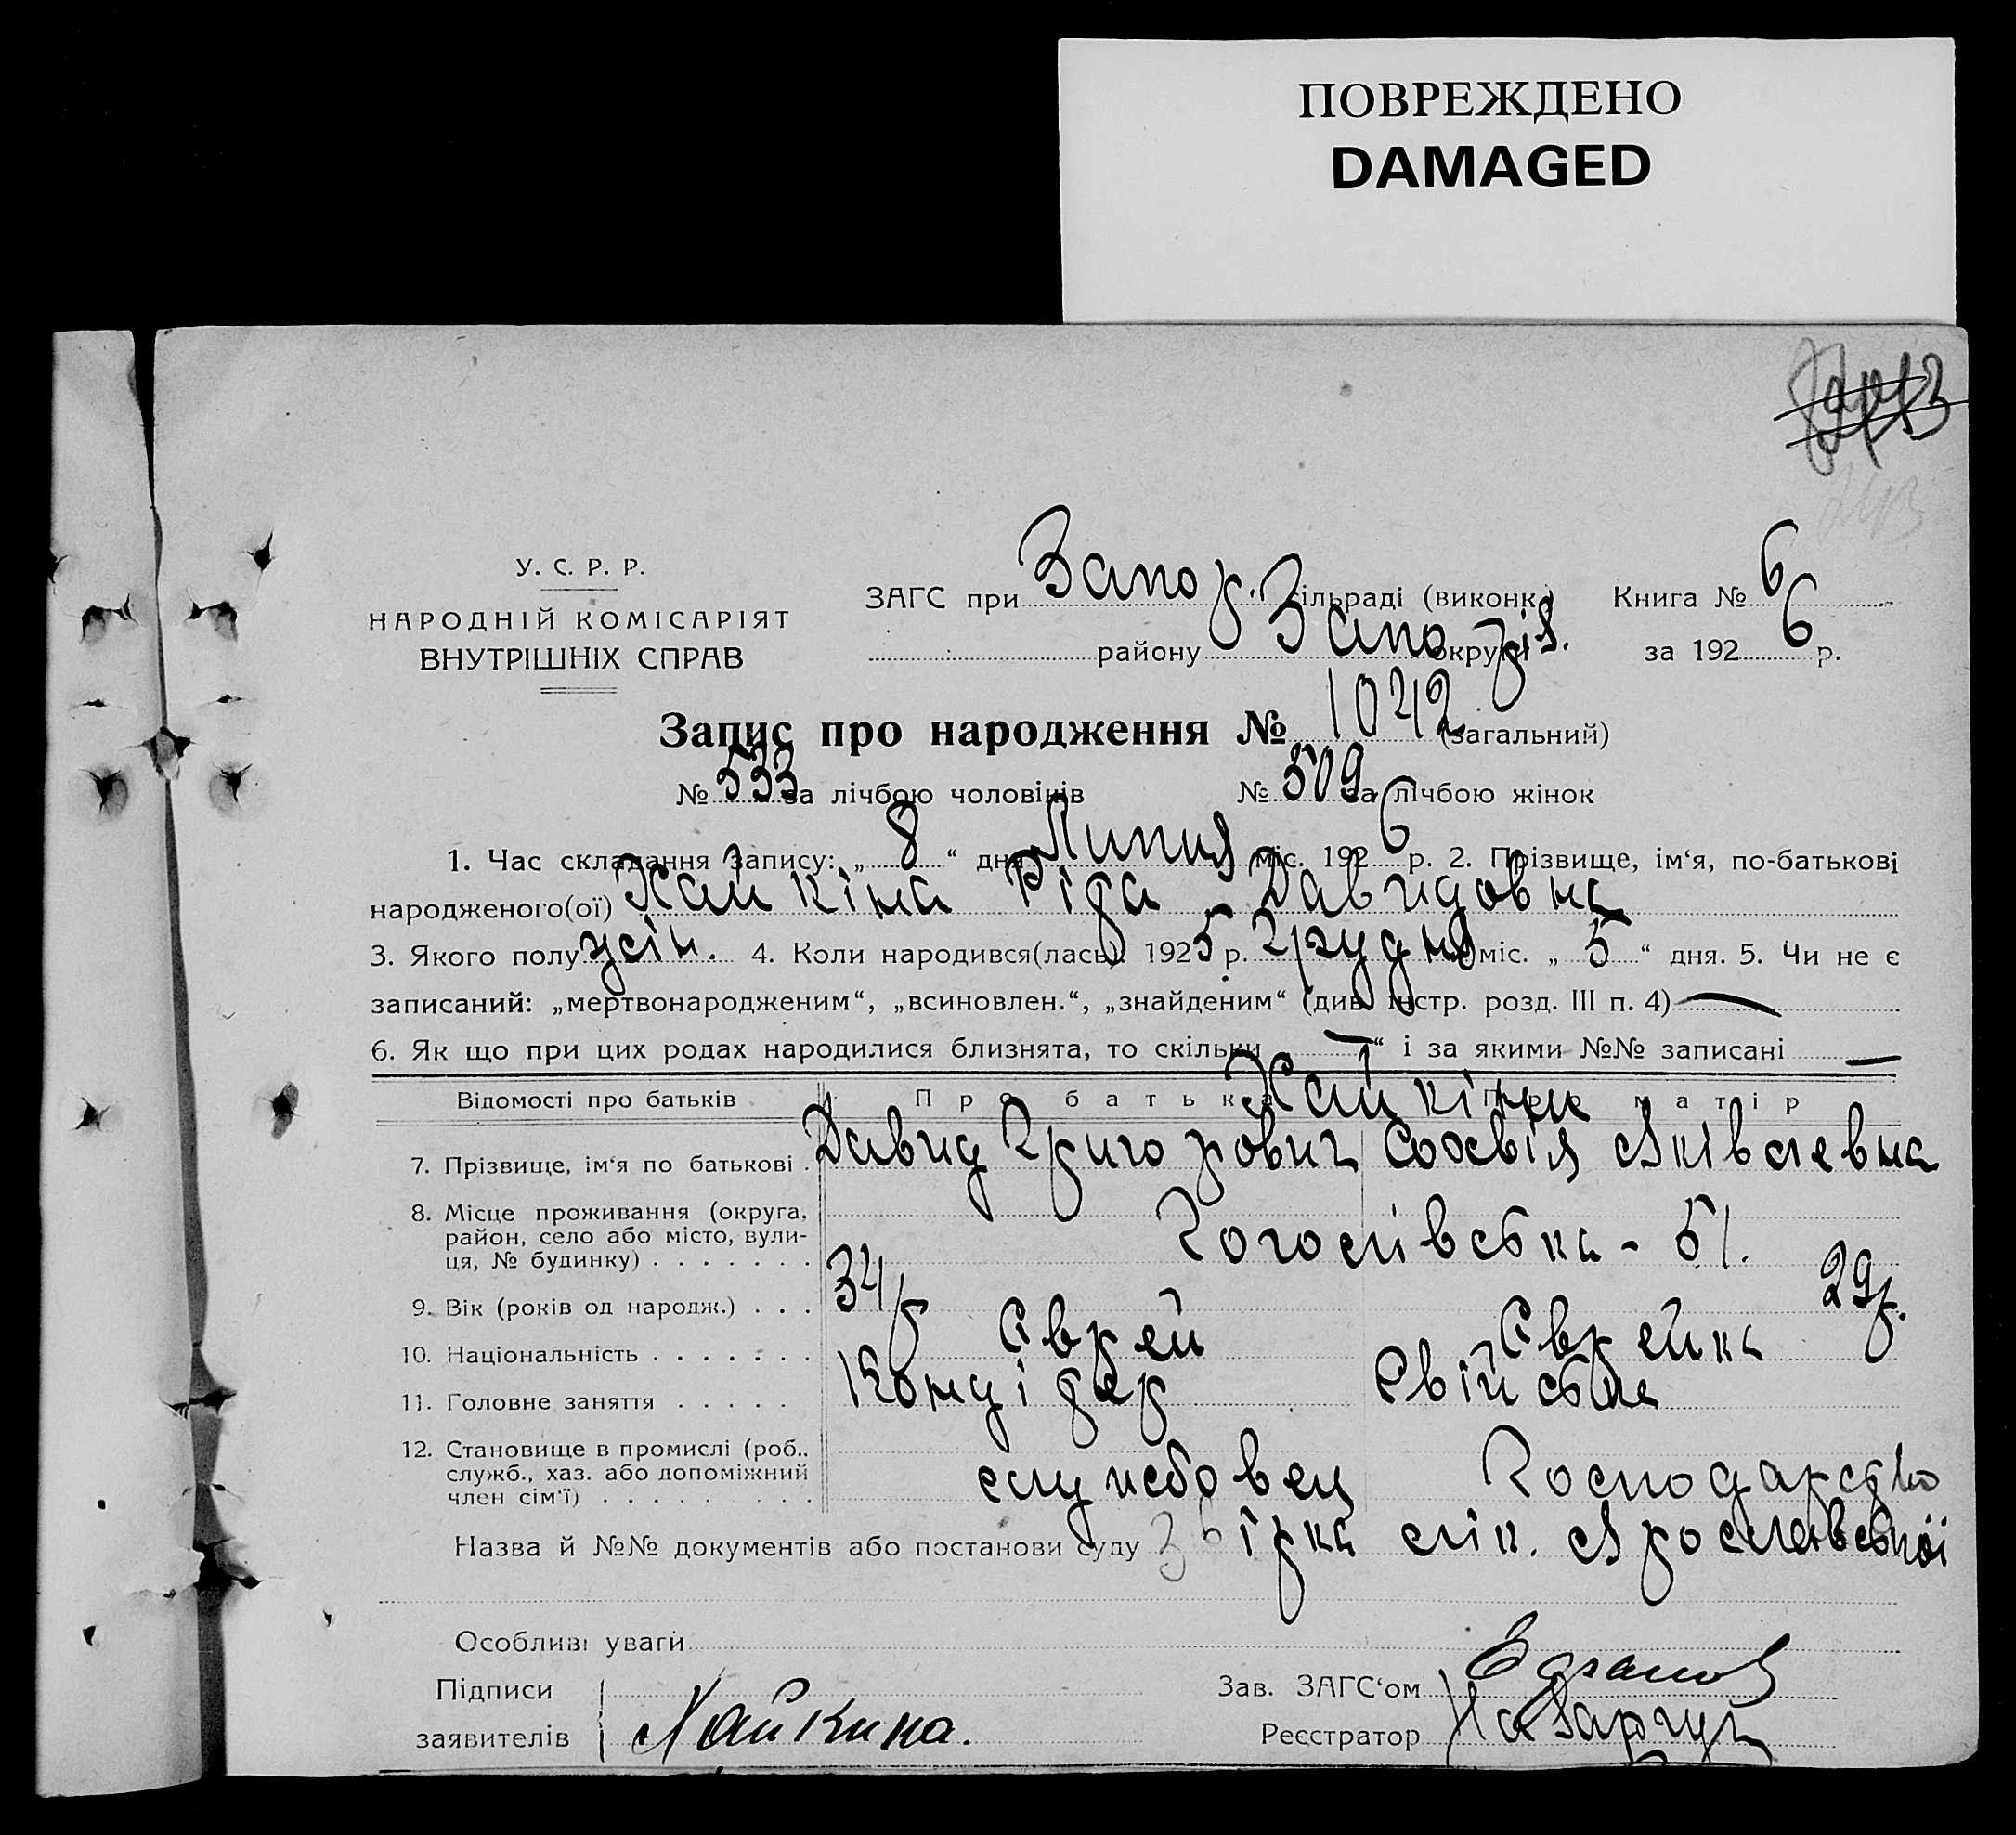 ПОВРЕЖДЕНО
DAMAGED
У. С. Р. Р.
НАРОДНІЙ КОМІСАРІЯТ
ВНУТРІШНІХ СПРАВ
ЗАГС при Запор. ільраді (виконк.) Книга № 6
району Запоріз. округи за 1926 р.
Запис про народження № 1042 (загальний)
№ 533 за лічбою чоловіків № 509 за лічбою жінок
1. Час складання запису: „ 8 “ дня Липня міс. 1926 р. 2. Прізвище, ім‘я, по-батькові
народженого(ої) Хайкіна Ріва Давидовна
3. Якого полу жін. 4. Коли народився(лась) 1925 р. Грудня міс. „ 5 “ дня. 5. Чи не є
записаний: „мертвонародженим“, „всиновлен.“, „знайденим“ (див. інстр. розд. III п. 4) —
6. Як що при цих родах народилися близнята, то скільки — “ і за якими №№ записані —
Відомості про батьків Про батька Про матір
Хайкіни
7. Прізвище, ім‘я по батькові . Давид Григорович Софвія Яківлевна
8. Місце проживання (округа, район, село або місто, вулиця, № будинку) . . . . . . . Гоголівська - 51.
9. Вік (років од народж.) . . . 34 р 29 р.
10. Національність . . . . . . . Єврей Єврейка
11. Головне заняття . . . . . Кондітер Свійське
12. Становище в промислі (роб., служб., хаз. або допоміжний член сім‘ї) . . . . . службовец Господарство
Назва й №№ документів або постанови суду лік. Ярославської
Особливі уваги
Підписи
заявителів Хайкина.
Зав. ЗАГС‘ом
Реєстратор